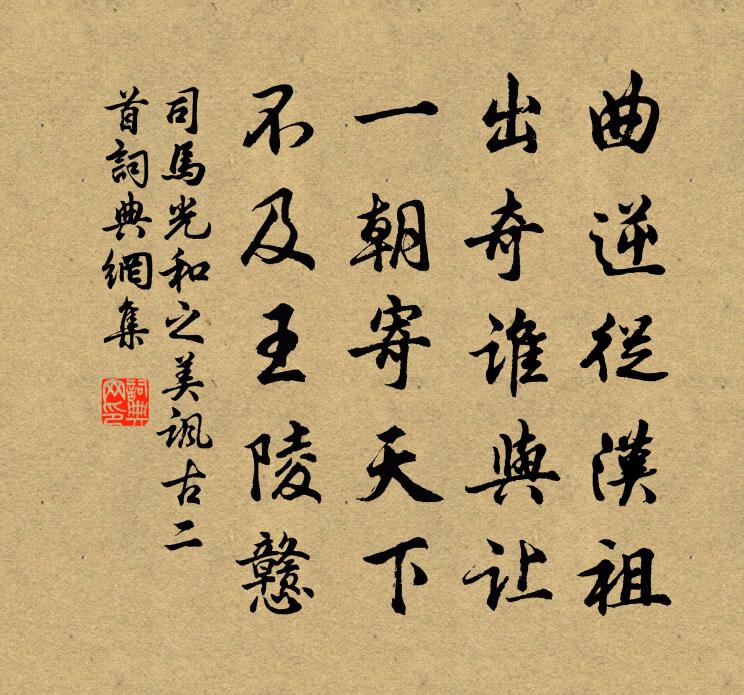 曲逆従漢祖
出奇誰與让
一朝寄天下
不及王陵戇
司馬光和之美諷古二
首詞典網集
詞典網印